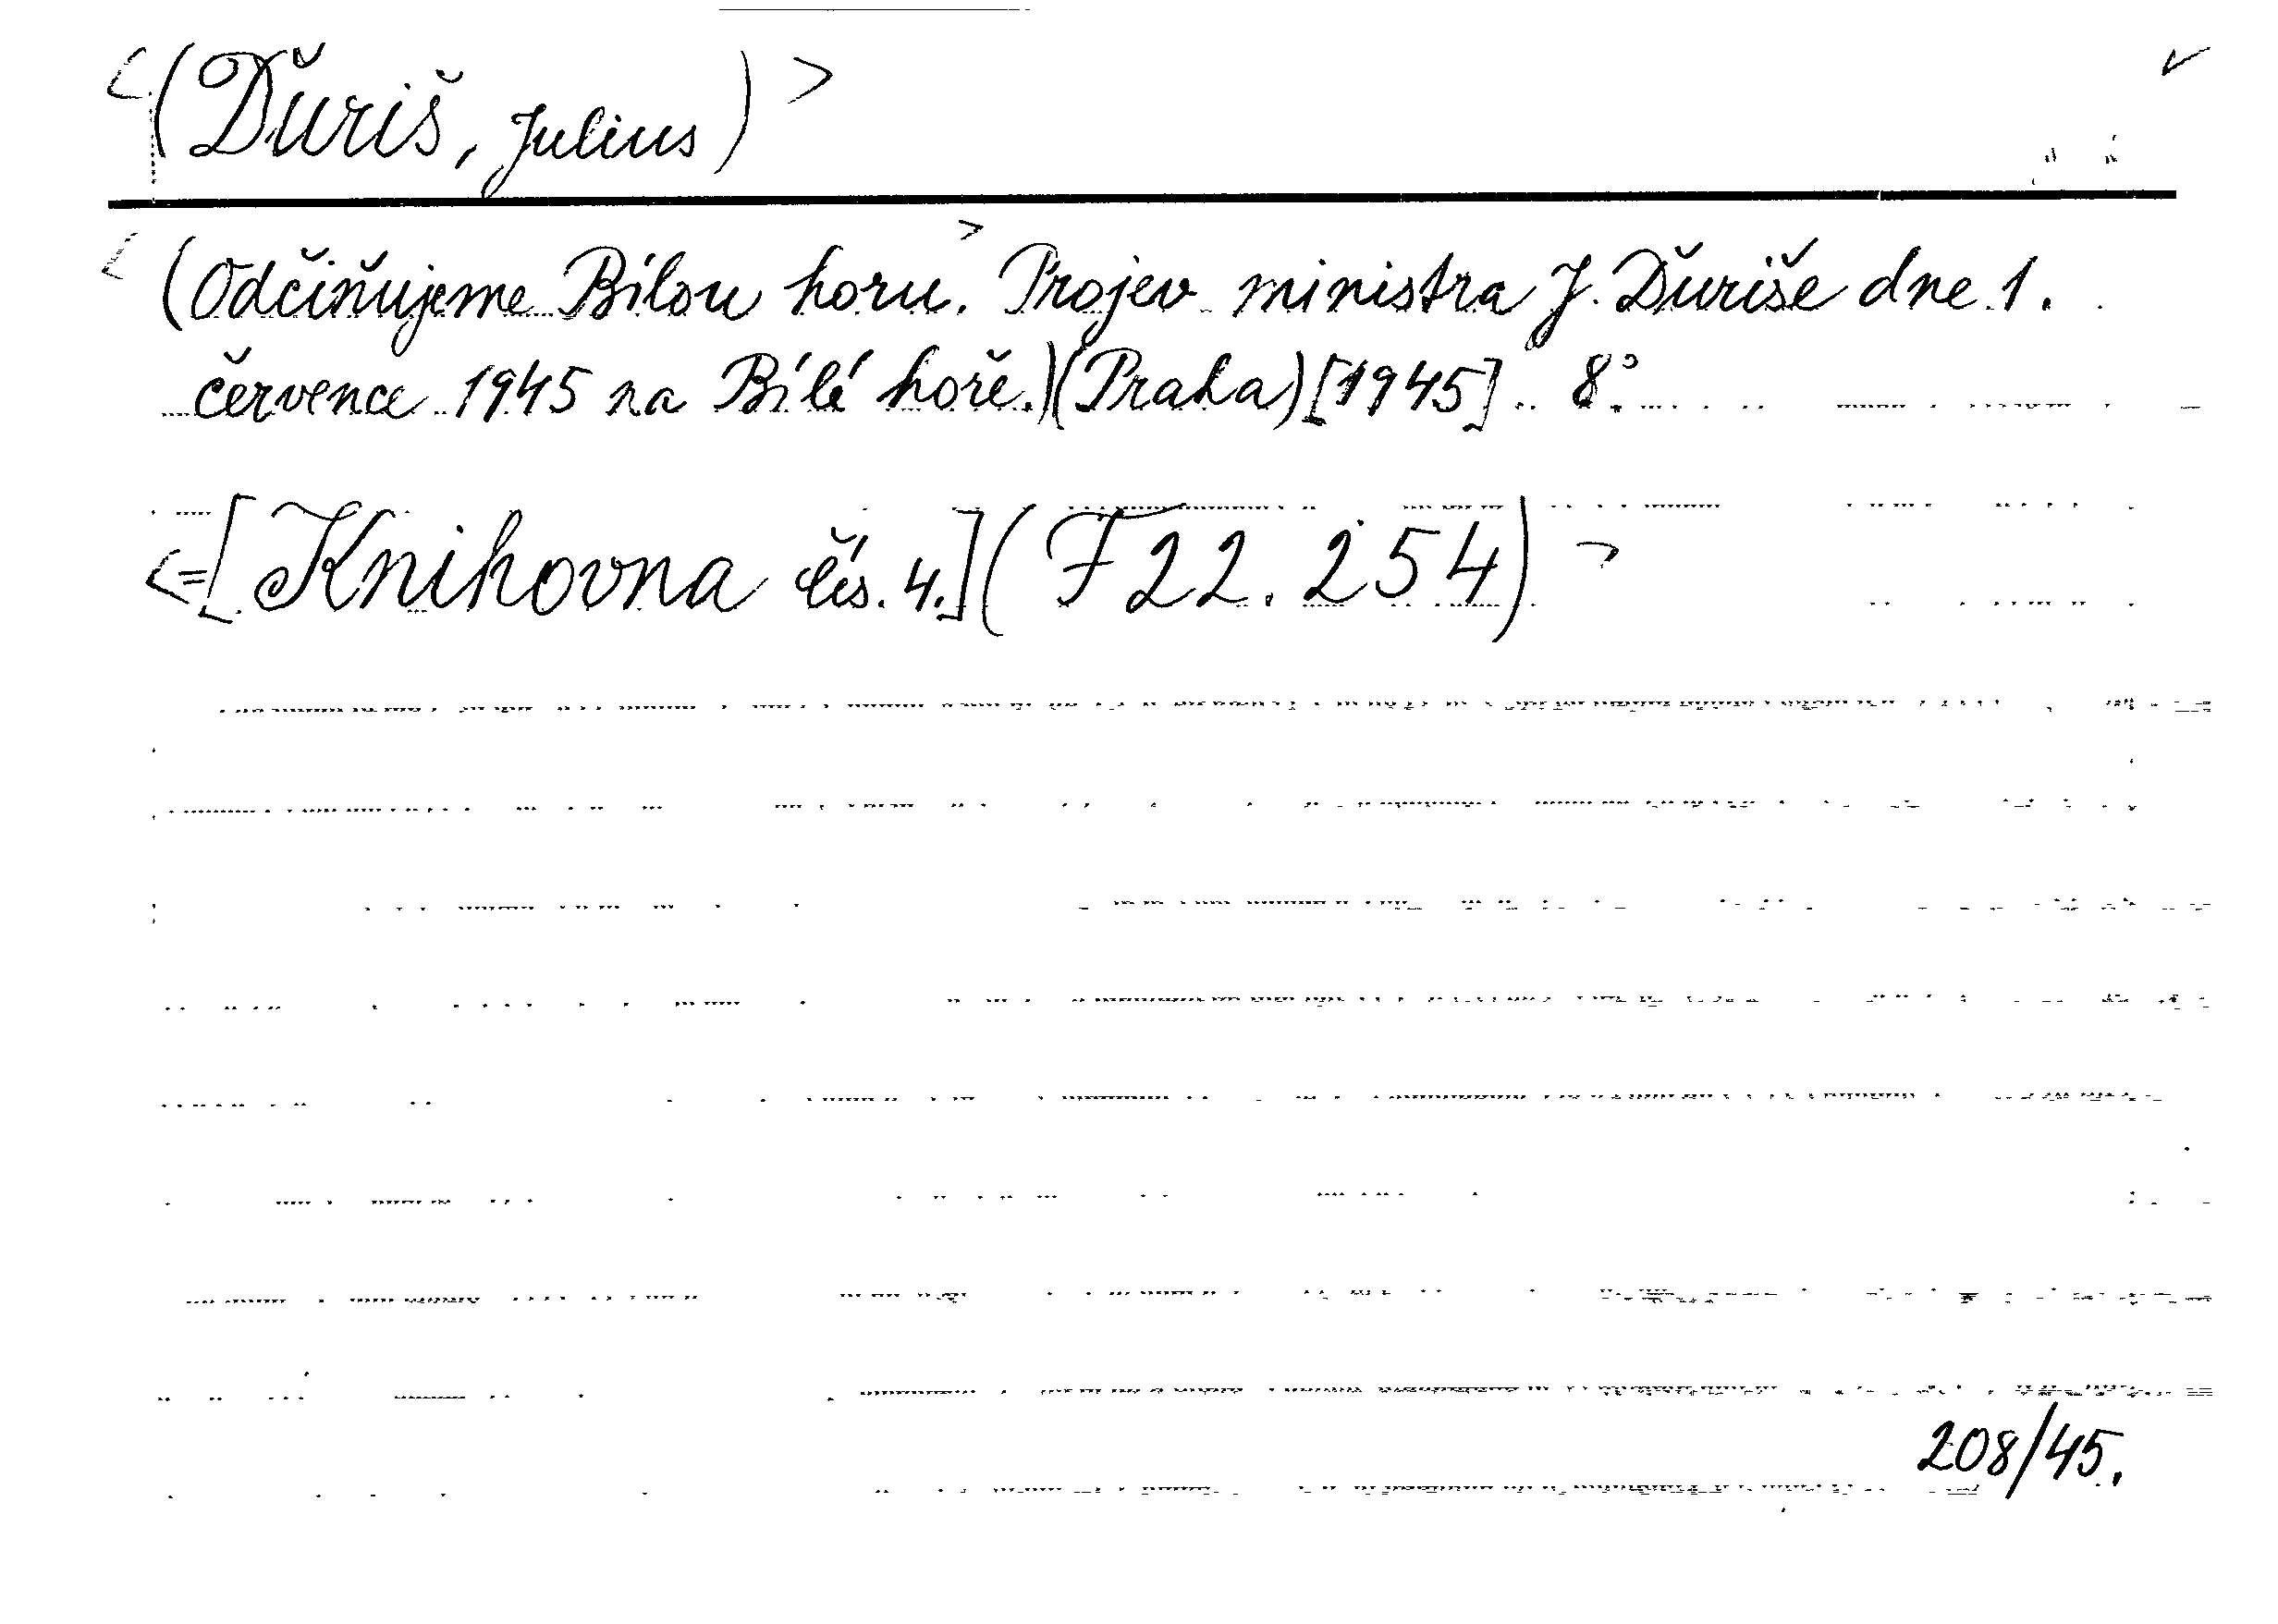 <(Ďuriš, Julius)>
<(Odčiňujeme Bílou horu.> Projev ministra J. Ďuriše dne 1.
července 1945 na Bílé hoře.)(Praha)[1945]. 8°.
<=[Knihovna čís. 4.](F 22.254)>
208/45.